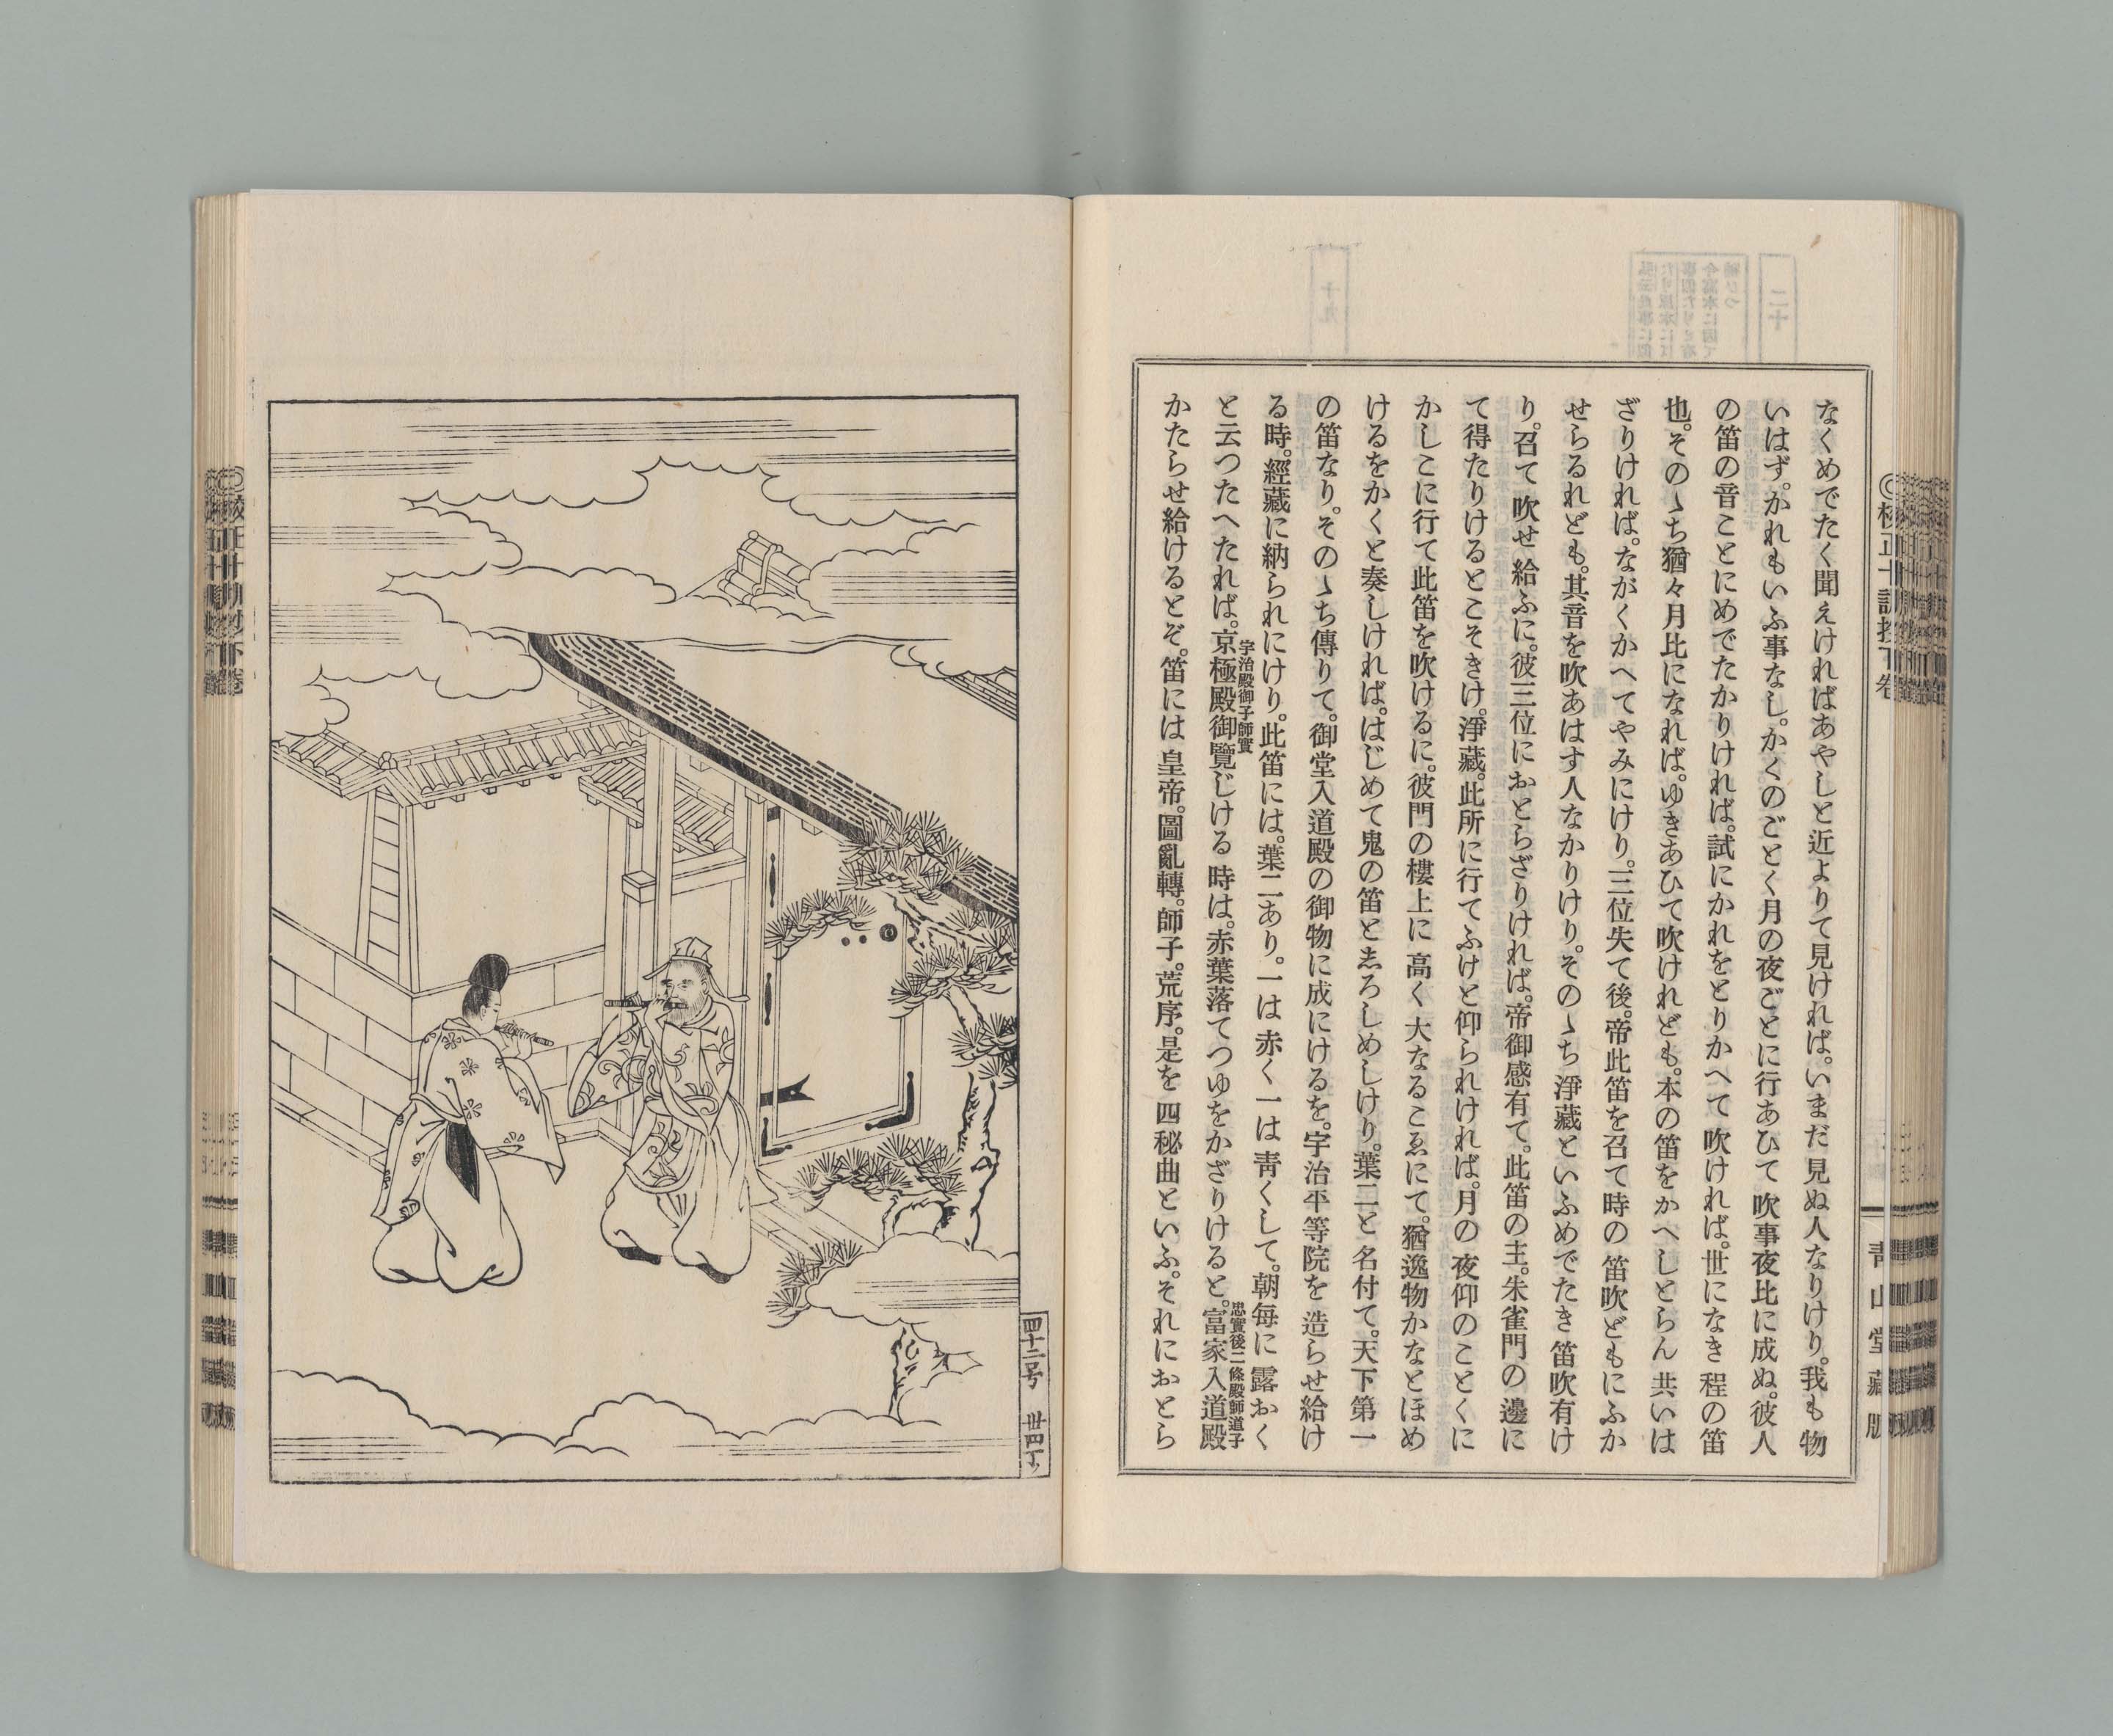 なくめでたく聞えければあやしと近よりて見ければ。いまだ見ぬ人なりけり。我も物
いはず。かれもいふ事なし。かくのごとく月の夜ごとに行あひて吹事夜比に成ぬ。彼人
の笛の音ことにめでたかりければ。試にかれをとりかへて吹ければ。世になき程の笛
也。そのゝち猶々月比になれば。ゆきあひて吹けれども。本の笛をかへしとらん共いは
ざりければ。ながくかへてやみにけり。三位失て後。帝此笛を召て時の笛吹どもにふか
せらるれども。其音を吹あはす人なかりけり。そのゝち淨藏といふめでたき笛吹有け
り。召て吹せ給ふに。彼三位におとらざりければ。帝御感有て。此笛の主。朱雀門の邊に
て得たりけるとこそきけ。淨藏。此所に行てふけと仰られければ。月の夜仰のことくに
かしこに行て此笛を吹けるに。彼門の樓上に高く大なるこゑにて。猶逸物かなとほめ
けるをかくと奏しければ。はじめて鬼の笛と志ろしめしけり。葉二と名付て。天下第一
の笛なり。そのゝち傳りて。御堂入道殿の御物に成にけるを。宇治平等院を造らせ給け
る時。經藏に納られにけり。此笛には。葉二あり。一は赤く一は靑くして。朝每に露おく
と云つたへたれば。京極殿御覽じける時は。赤葉落てつゆをかざりけると。富家入道殿
宇治殿御子師實
忠實後二條殿師道子
かたらせ給けるとぞ。笛には皇帝。圖亂轉。師子。荒序。是を四秘曲といふ。それにおとら
◎校正十訓抄下卷
靑山堂藏版
四十二号
丗四丁